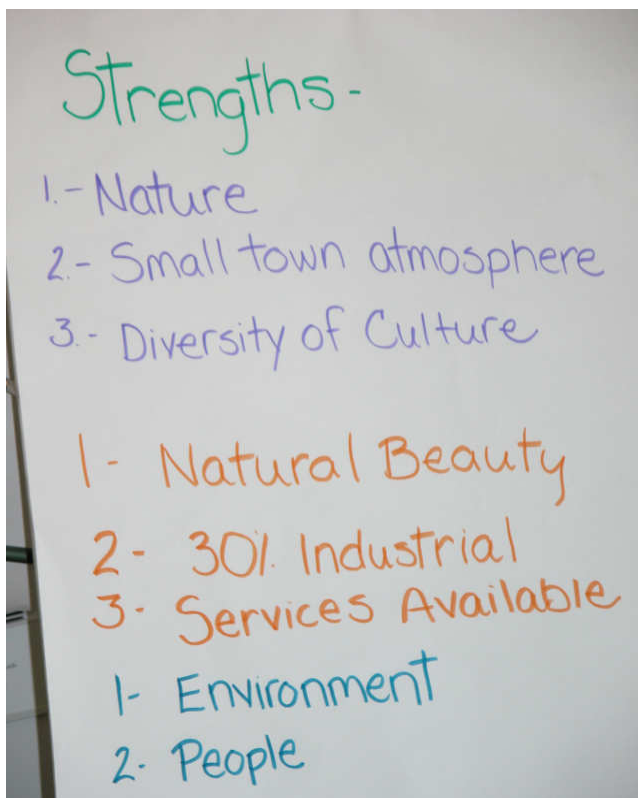 Strengths-
1.- Nature
2.- Small town atmosphere
3.- Diversity of Culture
1- Natural Beauty
2- 30% Industrial
3- Services Available
1- Environment
2- People